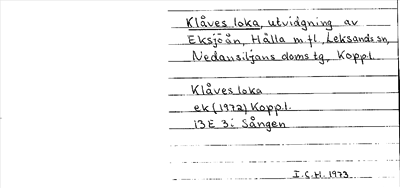 Klåves loka, utvidgning av
Eksjöån, Hålla m fl, Leksands sn,
Nedansiljans doms tg, Koppl.
Klåves loka
ek (1972) Koppl.
13 E 3 i Sången
I.C.H. 1973